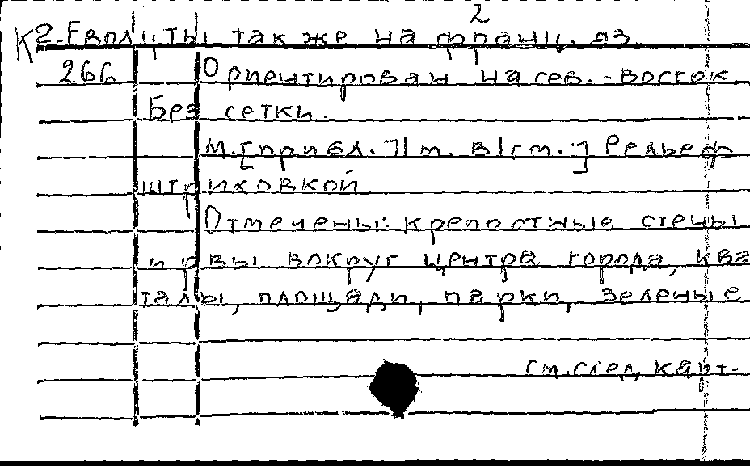 2
К 2-Га долготы также на франц. яз.
266 Ориентирован на сев.-восток
Без сетки.
М.[прибл. 1 м. в 1 см.] Рельеф
штриховкой
Отмечены: крепостные стены
и рвы вокруг центра города, ква
талы, площади, парки, зеленые
см. след. карт.